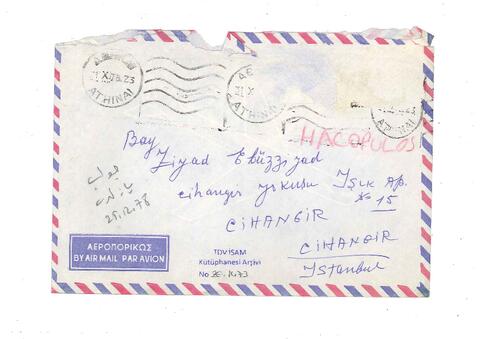 31.X.78.23
ΑΘΗΝΑΙ ATHINAI
ATHINAI
ATHINAI
HACOPULOS
Bay
Ziyad Ebüzziyad
Cihangir Yokuşu Işık Ap.
№ 15
CİHANGİR
CİHANGİR
İstanbul
25.12.78
ΑΕΡΟΠΟΡΙΚΩΣ
BY AIR MAIL PAR AVION
TDV İSAM
Kütüphanesi Arşivi
No